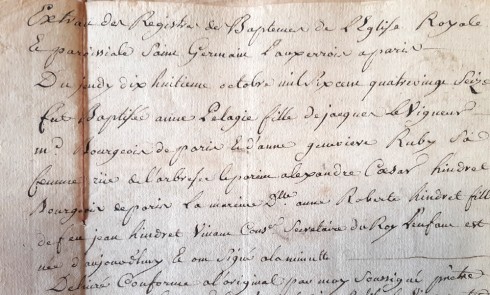 Extrait des Registre de Baptemes de l'Eglise Royale
et paroissiale Saint Germain l'auxerrois a paris
Du jeudy dix huitieme octobre mil six cent quatre vingt seize
fut Baptisée anne Pelagie fille de jacques le Vigneur
md Bourgeois de paris et d'anne genevieve Ruby Sa
femme rüe de l'arbresec le parin alexandre Cœsar hindret
Bourgeois de paris la marine Dlle anne Roberte hindret fille
de feu jean hindret Vivant Consr Secretaire du Roy l'enfant est
née d'aujourd'huy et ont Signé a la minutte
Delivré Conforme a l'original par moy Soussigné prêtre